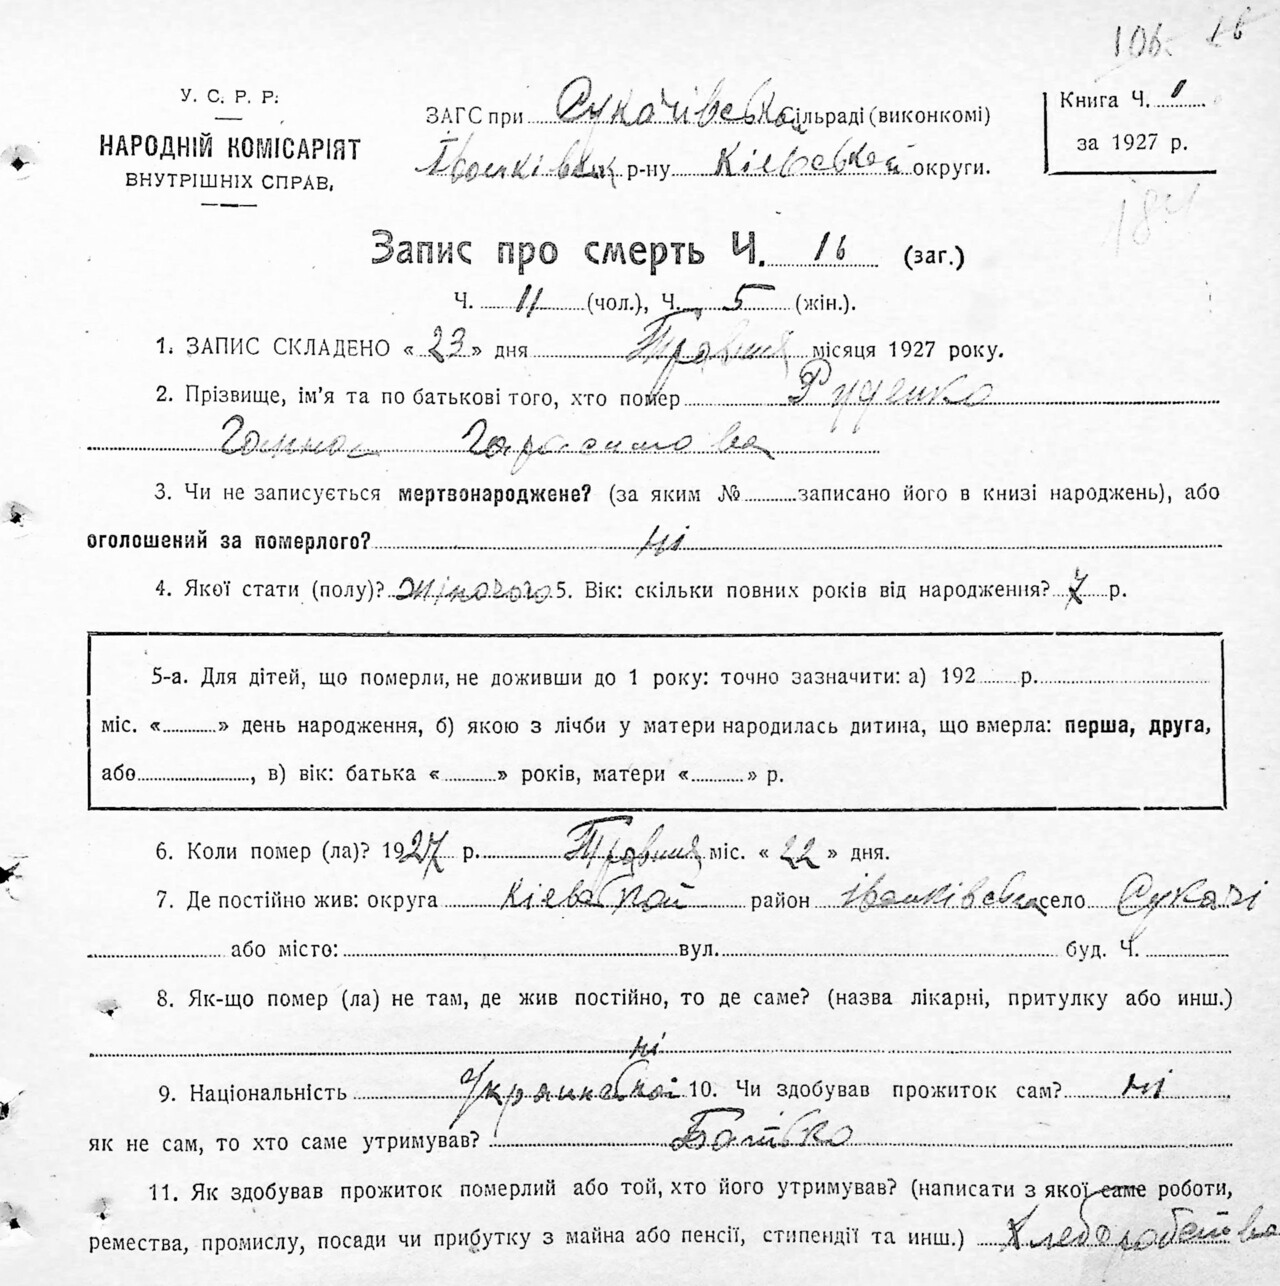 106
У. С. Р. Р.
НАРОДНІЙ КОМІСАРІЯТ
ВНУТРІШНІХ СПРАВ,
ЗАГС при Сукачівська сільраді (виконкомі)
Іванківськ р-ну Кієвской округи.
Книга Ч. 1
за 1927 р.
Запис про смерть Ч. 16 (заг.)
Ч. 11 (чол.), Ч. 5 (жін.).
1. ЗАПИС СКЛАДЕНО « 23 » дня Травня місяця 1927 року.
2. Прізвище, ім'я та по батькові того, хто помер Руденко
Ганна Гарасимова
3. Чи не записується мертвонароджене? (за яким № записано його в книзі народжень), або
оголошений за померлого? ні
4. Якої стати (полу)? жіночого 5. Вік: скільки повних років від народження? 7 р.
5-а. Для дітей, що померли, не доживши до 1 року: точно зазначити: а) 192 р.
міс. « » день народження, б) якою з лічби у матери народилась дитина, що вмерла: перша, друга,
або , в) вік: батька « » років, матери « » р.
6. Коли помер (ла)? 1927 р. Травня міс. « 22 » дня.
7. Де постійно жив: округа Кієвской район іванківська село Сукачі
або місто: вул. буд. Ч.
8. Як-що помер (ла) не там, де жив постійно, то де саме? (назва лікарні, притулку або инш.)
ні
9. Національність Украинской 10. Чи здобував прожиток сам? ні
як не сам, то хто саме утримував? Батько
11. Як здобував прожиток померлий або той, хто його утримував? (написати з якої саме роботи,
ремества, промислу, посади чи прибутку з майна або пенсії, стипендії та инш.) Хлеборобства